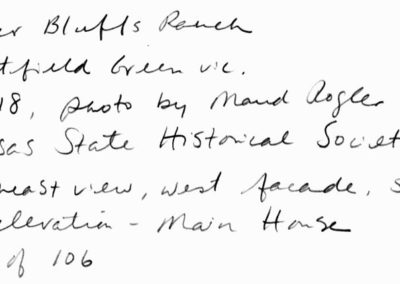 er Bluffs Ranch
tfield Green vic.
18, photo by Maud Rogler
sas State Historical Societ
heast view, west facade, s
elevation - Main House
of 106